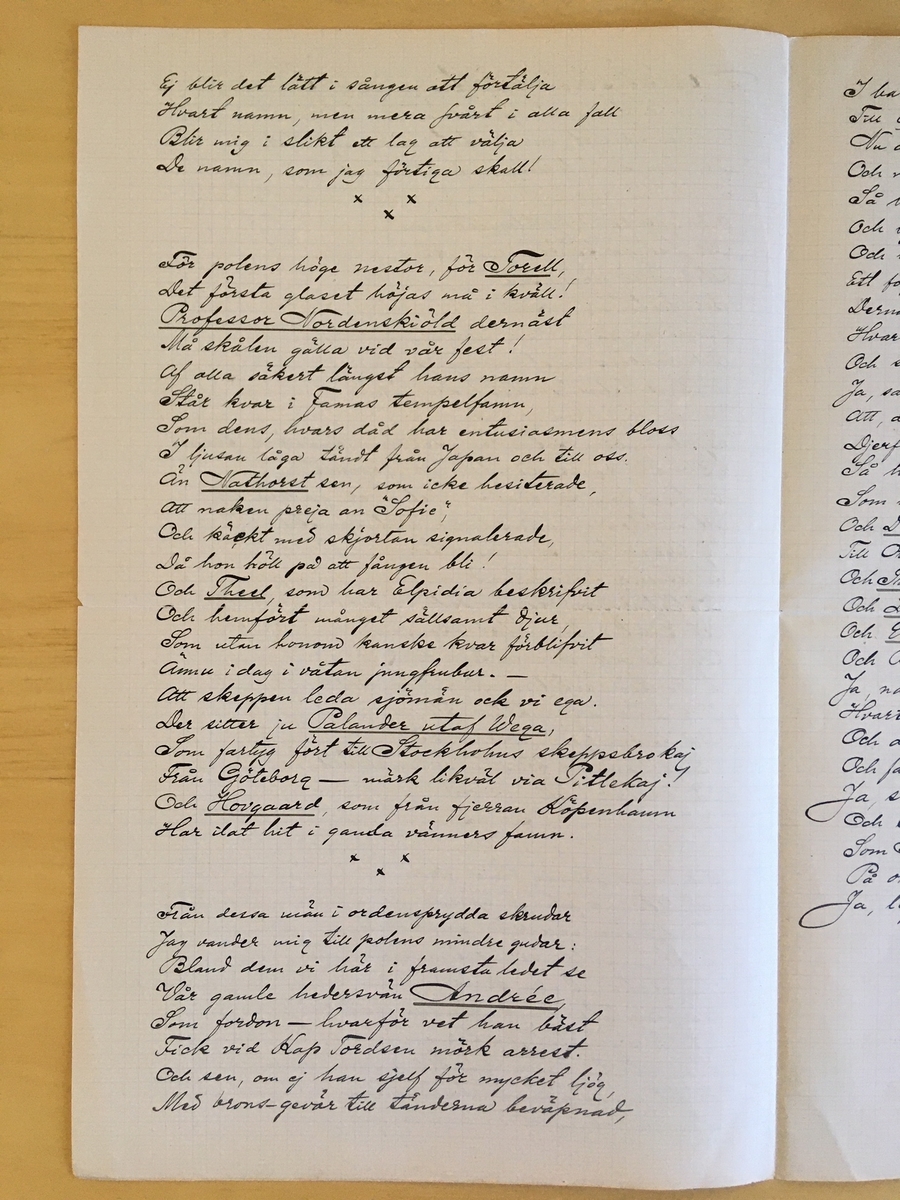 Ej blir det lätt i sången att förtälja
Hvart namn, men mera svårt i alla fall
Blir mig i slikt ett lag att välja
De namn, som jag förtiga skall!
x x
x
För polens höge nestor, för Torell,
Det första glaset höjas må i kväll!
Professor Nordenskiöld dernäst
Må skålen gälla vid vår fest!
Af alla säkert längst hans namn
Står kvar i Famas tempelfamn,
Som dens, hvars dåd har entusiasmens bloss
I ljusan låga tändt från Japan och till oss.
Än Nathorst sen, som icke hesiterade,
Att naken preja an "Sofie",
Och käckt med skjortan signalerade,
Då hon höll på att fången bli!
Och Theel, som har Elpidia beskrifvit
Och hemfört månget sällsamt djur,
Som utan honom kanske kvar förblifvit
Ännu i dag i våtan jungfrubur. —
Att skeppen leda sjömän ock vi ega.
Der sitter ju Palander utaf Wega,
Som fartyg fört till Stockholms skeppsbrokaj
Från Göteborg — märk likväl via Pitlekaj!
Och Hovgaard, som från fjerran Köpenhamn
Har ilat hit i gamla vänners famn.
x x
x
Från dessa män i ordensprydda skrudar
Jag vänder mig till polens mindre gudar:
Bland dem vi här i främsta ledet se
Vår gamle hedersvän Andrée,
Som fordom — hvarför vet han bäst
Fick vid Kap Tordsen mörk arrest.
Och sen, om ej han sjelf för mycket ljög,
Med brons-gevär till tänderna beväpnad,
I
Till
Nu
Och
Så
Och
Och
Ett
Hvar
Och
Ja,
Att,
Djerf
Så
Som
Och
Till
Och
Och
Och
Och
Ja,
Hvart
Och
Och
Ja,
Och
Som
På
Ja,